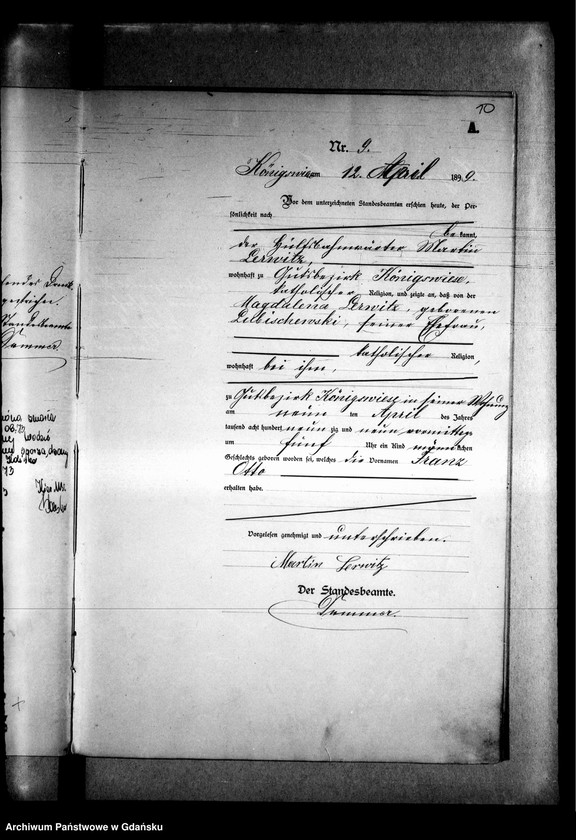 10
A.
Nr. 9.
Königswiese am 12. April 1899.
Vor dem unterzeichneten Standesbeamten erschien heute, der Per-
sönlichkeit nach
bekannt,
der Hülfsbahnwärter Martin
Lerwitz,
wohnhaft zu Gutsbezirk Königswiese,
katholischer Religion, und zeigte an, daß von der
Magdalena Lerwitz, geborenen
Lubischewski, seiner Ehefrau,
katholischer Religion,
wohnhaft bei ihm,
zu Gutsbezirk Königswiese in seiner Wohnung
am neun ten April des Jahres
tausend acht hundert neun zig und neun vormittags
um fünf Uhr ein Kind männlichen
Geschlechts geboren worden sei, welches die Vornamen Franz
Otto
erhalten habe.
Vorgelesen, genehmigt und unterschrieben.
Martin Lerwitz
Der Standesbeamte.
Dammer.
Archiwum Państwowe w Gdańsku